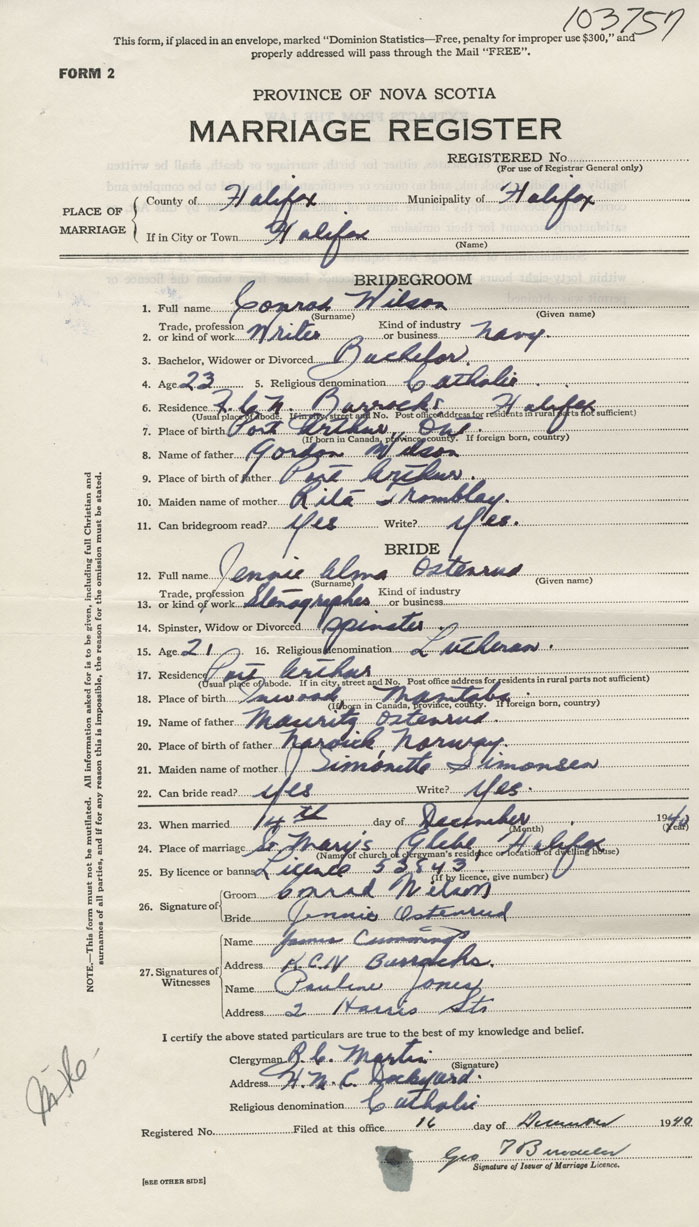 103757
This form, if placed in an envelope, marked "Dominion Statistics—Free, penalty for improper use $300," and
properly addressed will pass through the Mail "FREE".
FORM 2
PROVINCE OF NOVA SCOTIA
MARRIAGE REGISTER
REGISTERED No.
(For use of Registrar General only)
PLACE OF MARRIAGE
County of Halifax Municipality of Halifax
If in City or Town Halifax
(Name)
BRIDEGROOM
1. Full name Conrad Wilson
(Surname) (Given name)
2. Trade, profession or kind of work Writer Kind of industry or business Navy.
3. Bachelor, Widower or Divorced Bachelor.
4. Age 23 5. Religious denomination Catholic
6. Residence R.C.N. Barracks Halifax
(Usual place of abode. If in city, street and No. Post office address for residents in rural parts not sufficient)
7. Place of birth Port Arthur, Ont.
(If born in Canada, province, county. If foreign born, country)
8. Name of father Gordon Wilson
9. Place of birth of father Port Arthur.
10. Maiden name of mother Rita Tromblay.
11. Can bridegroom read? Yes Write? Yes.
BRIDE
12. Full name Jennie Alma Ostenrud
(Surname) (Given name)
13. Trade, profession or kind of work Stenographer Kind of industry or business
14. Spinster, Widow or Divorced Spinster.
15. Age 21 16. Religious denomination Lutheran.
17. Residence Port Arthur
(Usual place of abode. If in city, street and No. Post office address for residents in rural parts not sufficient)
18. Place of birth Inwood, Manitoba.
(If born in Canada, province, county. If foreign born, country)
19. Name of father Mauritz Ostenrud.
20. Place of birth of father Narvick, Norway.
21. Maiden name of mother Simonette Simonsen
22. Can bride read? Yes Write? Yes.
23. When married 14th day of December 1940
(Month) (Year)
24. Place of marriage St Mary's Glebe Halifax
(Name of church or clergyman's residence or location of dwelling house)
25. By licence or banns Licence 53843.
(If by licence, give number)
26. Signature of
Groom Conrad Wilson
Bride Jennie Ostenrud
27. Signatures of Witnesses
Name James Cummings
Address R.C.N Barracks.
Name Pauline Jones
Address 2 Harris Sts
I certify the above stated particulars are true to the best of my knowledge and belief.
Clergyman R.C. Martin
(Signature)
Address H.M.C. Dockyard.
Religious denomination Catholic
Registered No. Filed at this office 16 day of December 1940
Geo T
Signature of Issuer of Marriage Licence.
[SEE OTHER SIDE]
NOTE.—This form must not be mutilated. All information asked for is to be given, including full Christian and
surnames of all parties, and if for any reason this is impossible, the reason for the omission must be stated.